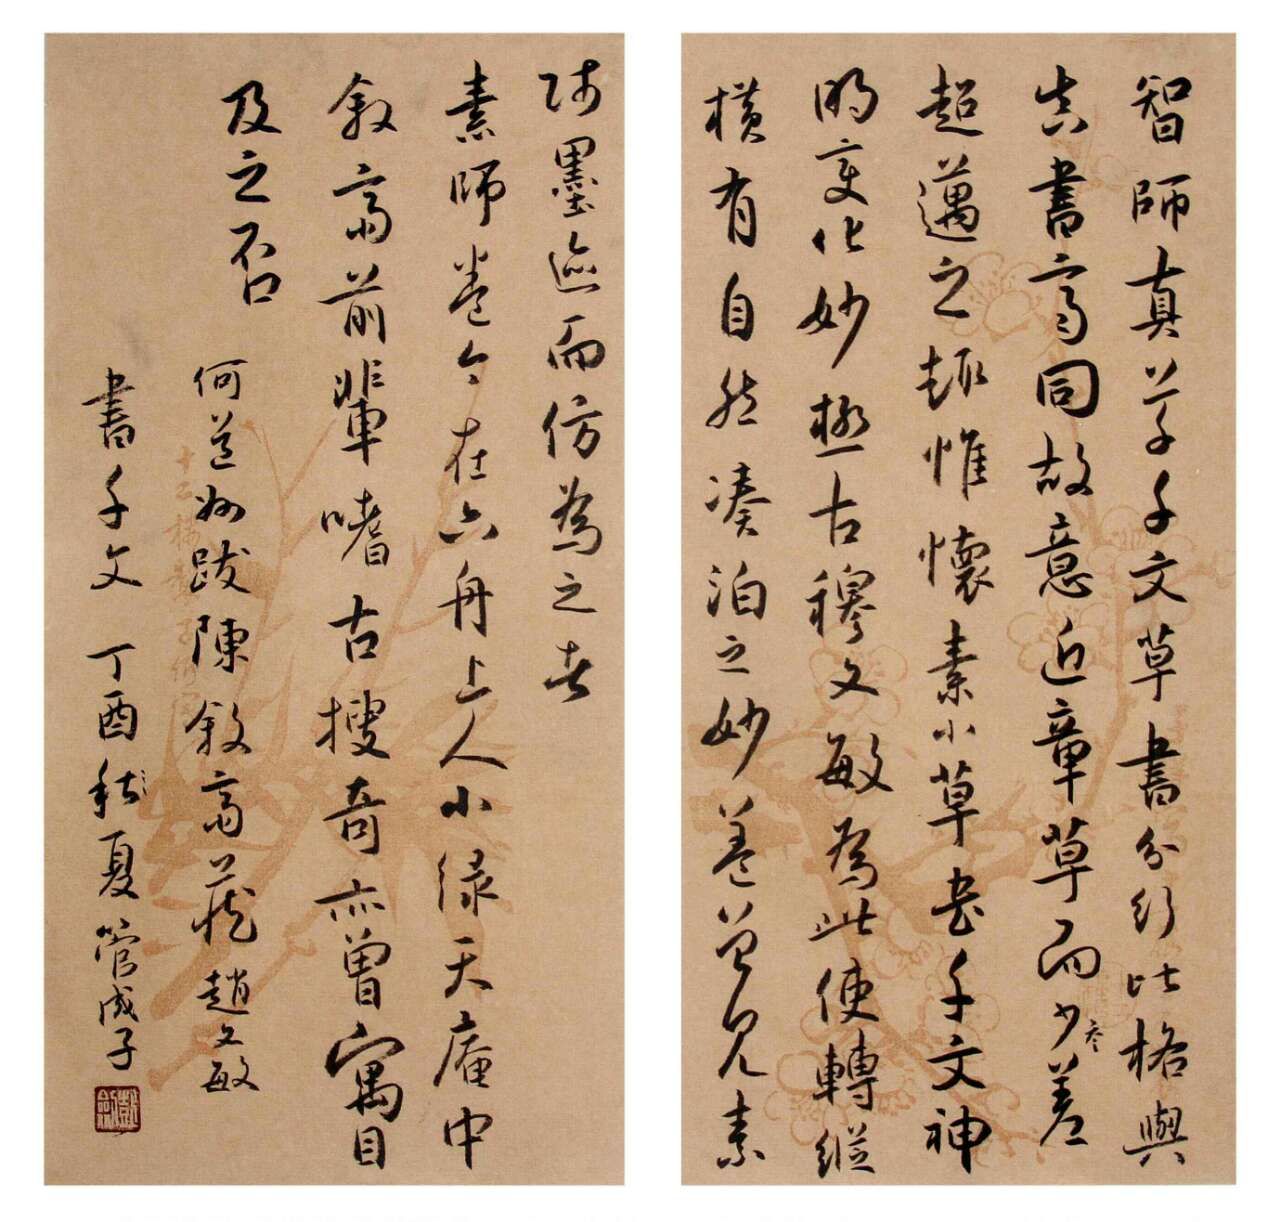 智師真草千文草書分行比格與
真書高同故意近章草而少參差
超邁之趣惟懷素小草書千文神
明變化妙極古穆文敏為此使轉縱
橫有自然湊泊之妙蓋曾見素
師墨迹而仿為之者
素師卷今在六舟上人小綠天庵中
敘齋前輩嗜古搜奇亦曾寓目
及之否
何道州跋陳敘齋藏趙文敏
書千文 丁酉秋夏管成子